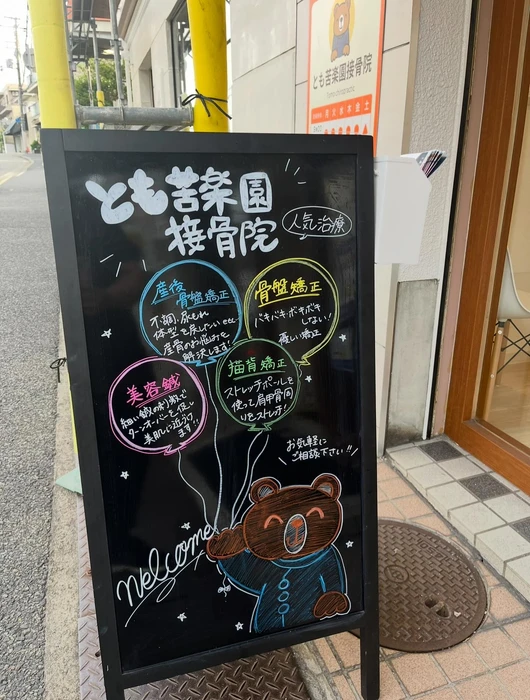 とも苦楽園接骨院
とも苦楽園
接骨院
人気治療
産後
骨盤矯正
不調、尿もれ
体型を戻したい etc…
産骨のお悩みを
解決します!
骨盤矯正
バキバキ・ボキボキ
しない!
優しい矯正
美容鍼
細い鍼の刺激で
ターンオーバーを促し
美肌に近づけ
ます!!
猫背矯正
ストレッチポールを
使って肩甲骨周
りをストレッチ!
お気軽に
ご相談下さい!!
Welcome